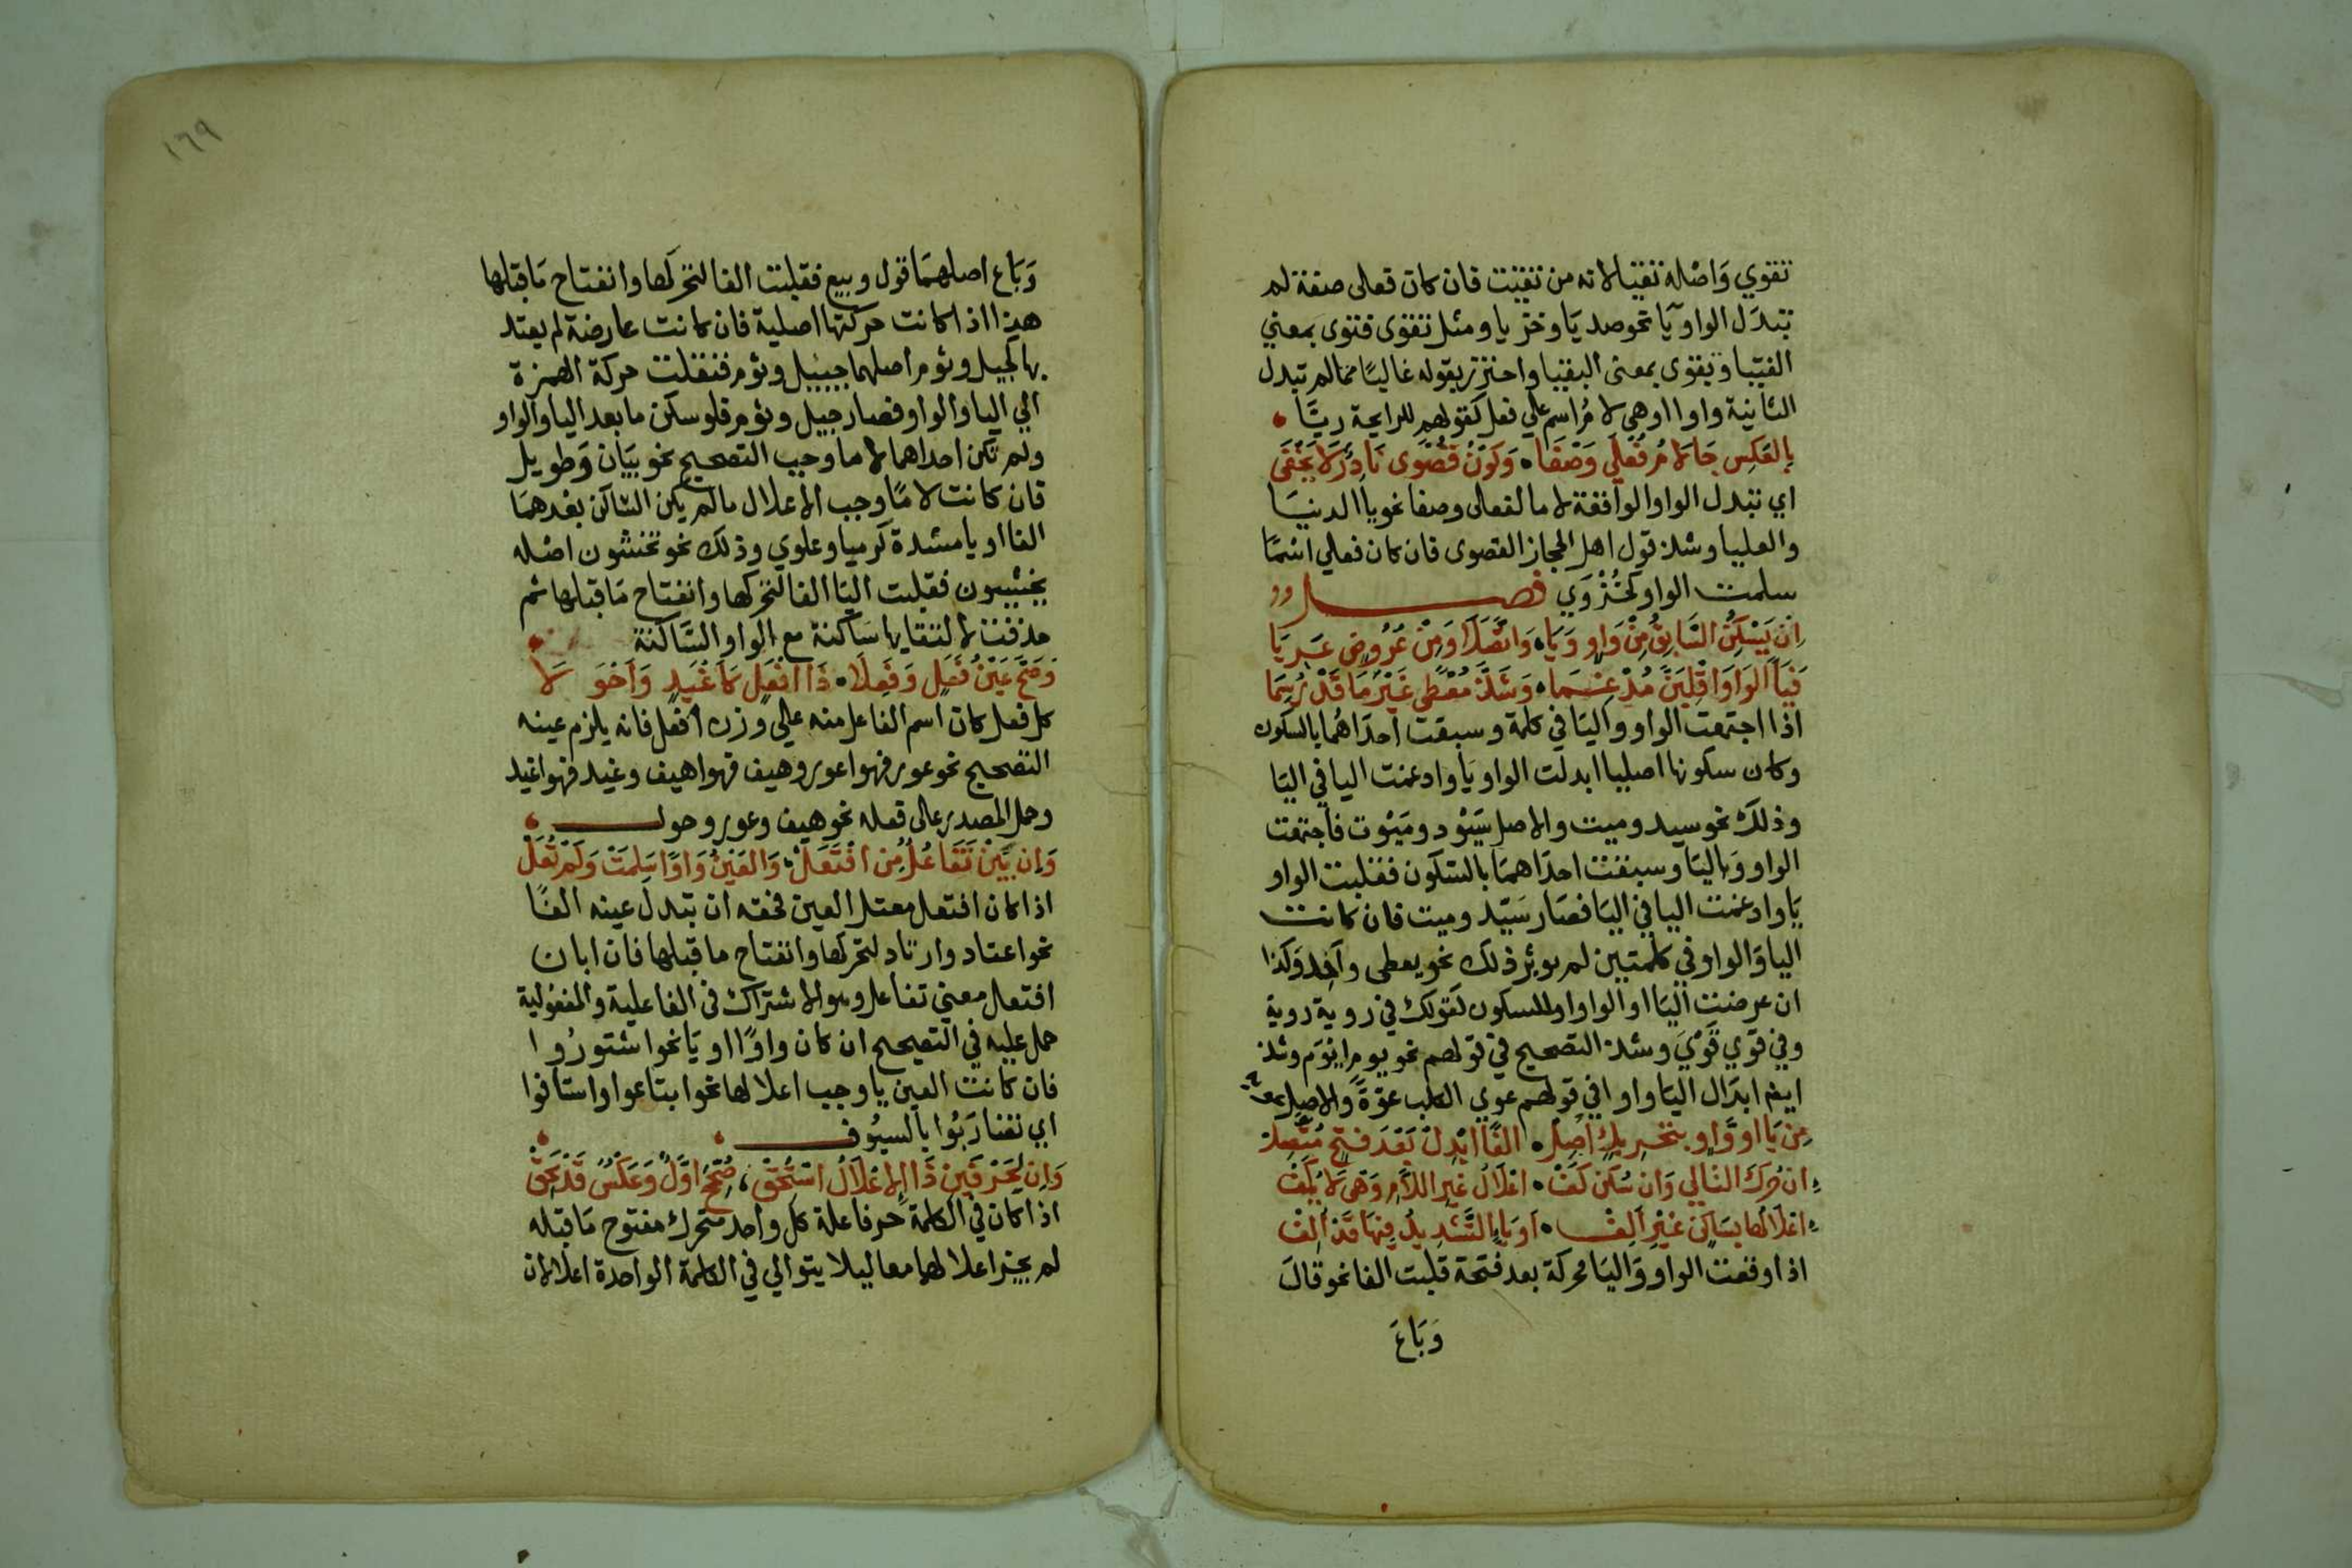 تقوي وَاصْله تقيا لانه من تقيت فان كان فعلى صفة لم
تبدَل الواو يآ نحو صديَا وخزيا ومثل تقوى فتوى بمعني
الفتيا وبقوى بمعنى البقيا واحترز بقوله غالبًا مما لم تبدل
الثانية واوا وهي لامُ اسم علي فعلى كقولهم للرايحة ريَّا
بِالعَكسِ جَا لامُ فُعْلَي وَصْفَا وَكَوْنُ قُصْوَى نَادِرًا لاَ يَخْفَى
اي تبدل الواو الواقعة لاما لفعلى وصفا نحو ياالدنيَا
والعليا وشذ قول اهل الحجاز القصوى فان كان فعلي اسْمًا
سلمت الواو كَحُزْوَي فصـــل
اِنْ يَسْكُنِ السَّابِقُ مِنْ وَاوٍ وَيَا وَاتَّصَلاَ وَمِنْ عُرُوضٍ عَرِيَا
فَيَاً الوَاوَ اقْلِبَنَّ مُدْغِمَا وَشَذَّ مُعْطًى غَيْرَ مَا قَدْ رُسِمَا
اذا اجتمعت الواو واليَا في كلمة وسبقت احدَاهُما بالسكون
وكان سكونها اصليا ابدلت الواو يَا وادغمت اليا في اليَا
وذلك نحو سيد وميت والاصل سَيْود ومَيْوت فاجتمعت
الواو وَاليَا وسبقت احدَاهمَا بالسّكون فقلبت الواو
يَا وادغمت اليا في اليَا فصَار سَيّد وميت فان كانت
اليا وَالواو في كلمتين لم يوثر ذلك نحو يعطى وآخِد وَكذا
ان عرضت اليَا او الواو او للسكون كقولك في روية روية
وفي قوي قَوْيَ وشذ التصحيح في قولهم نحو يوم ايْوَم وشذ
ايضا ابدَال اليَا واوا في قولهم عوي الكلب عوّةً والاصل عية
مِنْ يَا اَو وَاوٍ بتَحْرِيكٍ اُصِلْ الفًا ابْدِلْ بَعْدَ فَتْحٍ مُتَّصِلْ
ان حُرِّكَ التالي وَان سُكّن كَفّْ اعْلاَلَ غَيْرِ اللاَّمِ وَهْيَ لاَ يُكَفّْ
اعْلاَلُهَا بِسَاكِنٍ غَيْرِ اَلِفْ اَو يَاءٍ التَّشْدِيدُ فِيهَا قَدْ اُلِفْ
اذا وقعت الواو وَاليَا محركة بعد فتحة قلبت الفا نحو قالَ
وَبَاعَ
١٦٩
وَبَاع اصلهمَا قول وبيع فقلبت الفا لتحركها وانفتاح مَا قبلها
هذا اذا كانت حركتها اصلية فان كانت عارضة لم يعتد
بها كجيل وتوم اصلهما جييل وتؤم فنقلت حركة الهمزة
الي اليا والواو فصار جيل وتوم فلو سكن ما بعد اليا والواو
ولم تكن احداهما لاما وجب التصحيح نحو بيَان وَطويل
فان كانت لامًا وجب الاعلال ما لم يكن السّاكن بعْدهمَا
الفا او يا مشدة كرميا وعلوي وذلك نحو تخشون اصْله
يخشيون فقلبت اليَا الفا لتحركها وانفتاح مَا قبلها ثم
حذفت لالتقايها سَاكنة مع الواو السَّاكنة
وَصَحَّ عَيْنُ فَعَلٍ وَفَعِلاَ ذَا اَفْعَلٍ كاَغْيَدٍ وَاَحْوَلاَ
كل فعل كان اسم الفاعل منه علي وزن افعل فانه يلزم عينه
التصحيح نحو عور فهو اعور وهيف فهو اهيف وغيد فهو اغيد
وحمل المصدر عالى فعله نحو هيف وعور وحول
وَاِن يَبِنْ تَفَاعُلٌ مِن افْتَعَلْ وَالعَيْنُ وَاوٌ سَلِمَتْ وَلَمْ تُعَلّْ
اذا كان افتعل معتل العين فحقه ان تبدل عينه الفًا
نحو اعتاد وارتاد لتحركها وانفتاح ما قبلها فان ابان
افتعل معني تفاعل وهو الاشتراك في الفاعلية والمفعولية
حمل عليه في التصيحح ان كان واوًا او يَا نحو اشتورُوا
فان كانت العين يا وجب اعلالها نحو ابتاعوا واستافوا
اي تضَارَبُوا بالسيُوف
وَاِن لِحَرْفَيْنِ ذَا الاِعْلاَلُ اسْتُحِقّْ صُحِّحَ اَوَّلٌ وَعَكْسٌ قَدْ يَحِقّْ
اذا كان في الكلمة حرفا علة كل واحد متحرك مفتوح مَا قبله
لم يجز اعلالهما معا ليلا يتوالي في الكلمة الواحدة اعلالان